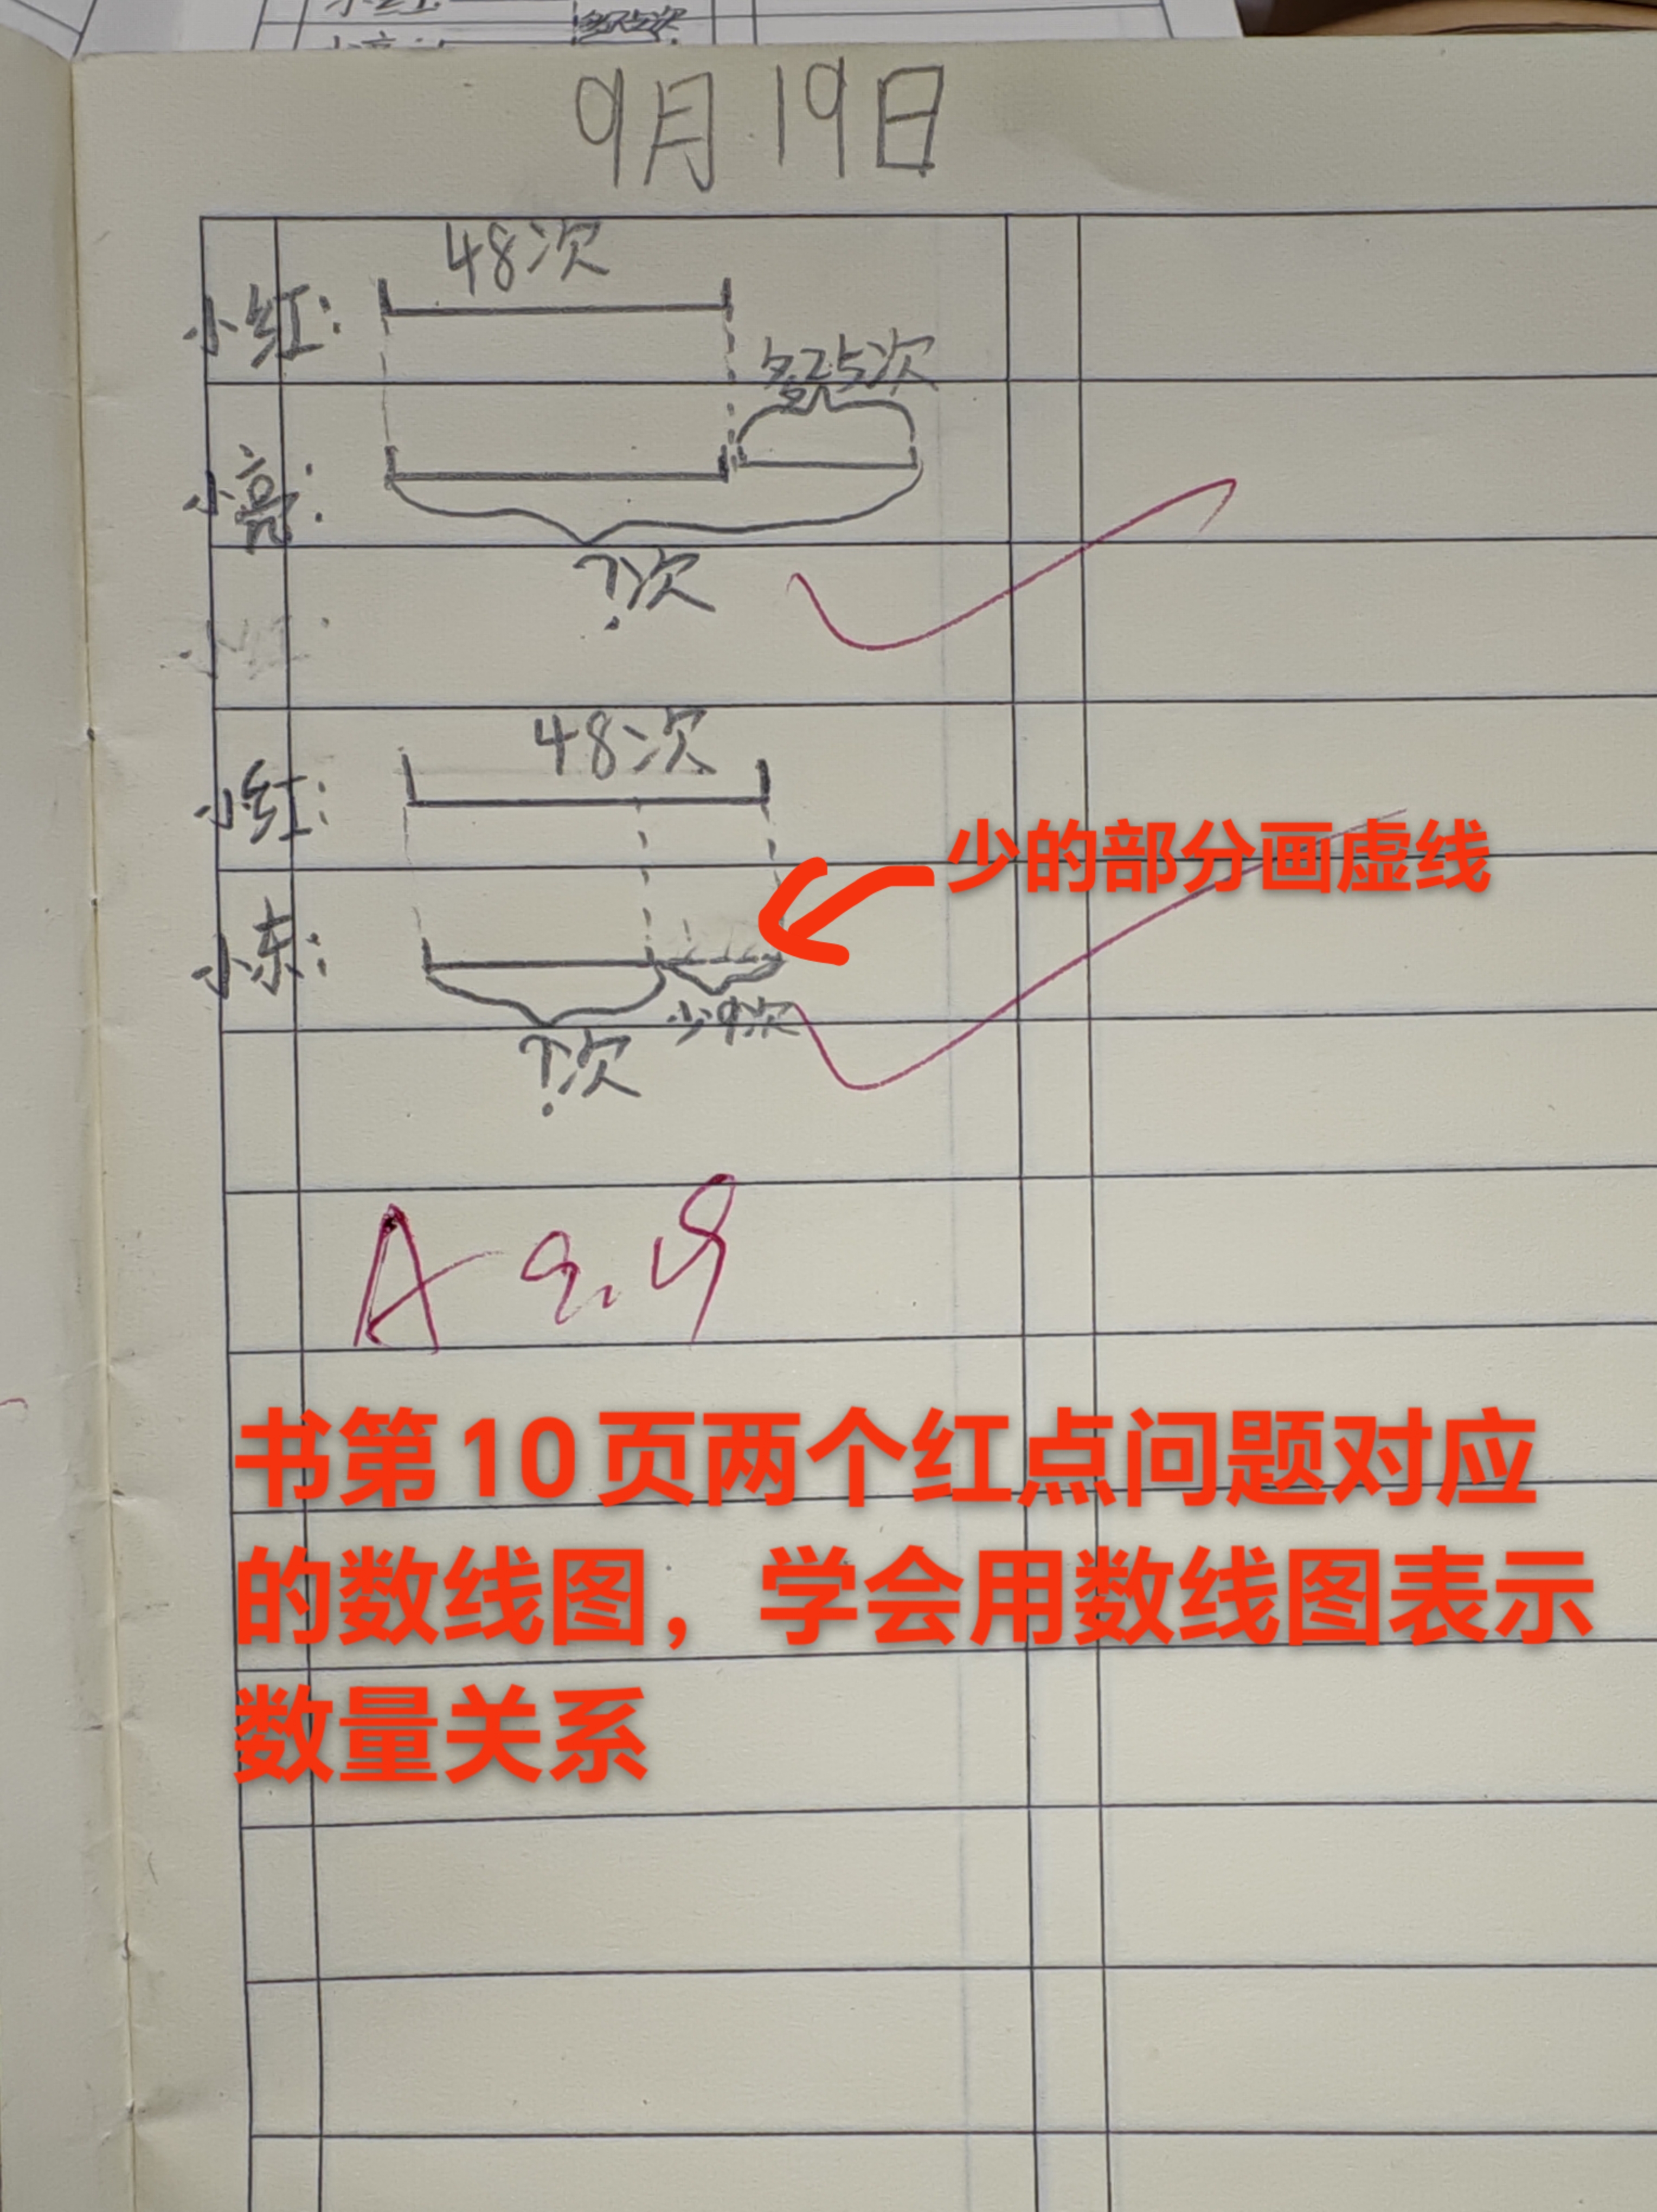 9月19日
48次
小红:
多25次
小亮:
?次
48次
小红:
少的部分画虚线
小东:
少9次
?次
A 9.19
书第10页两个红点问题对应
的数线图，学会用数线图表示
数量关系